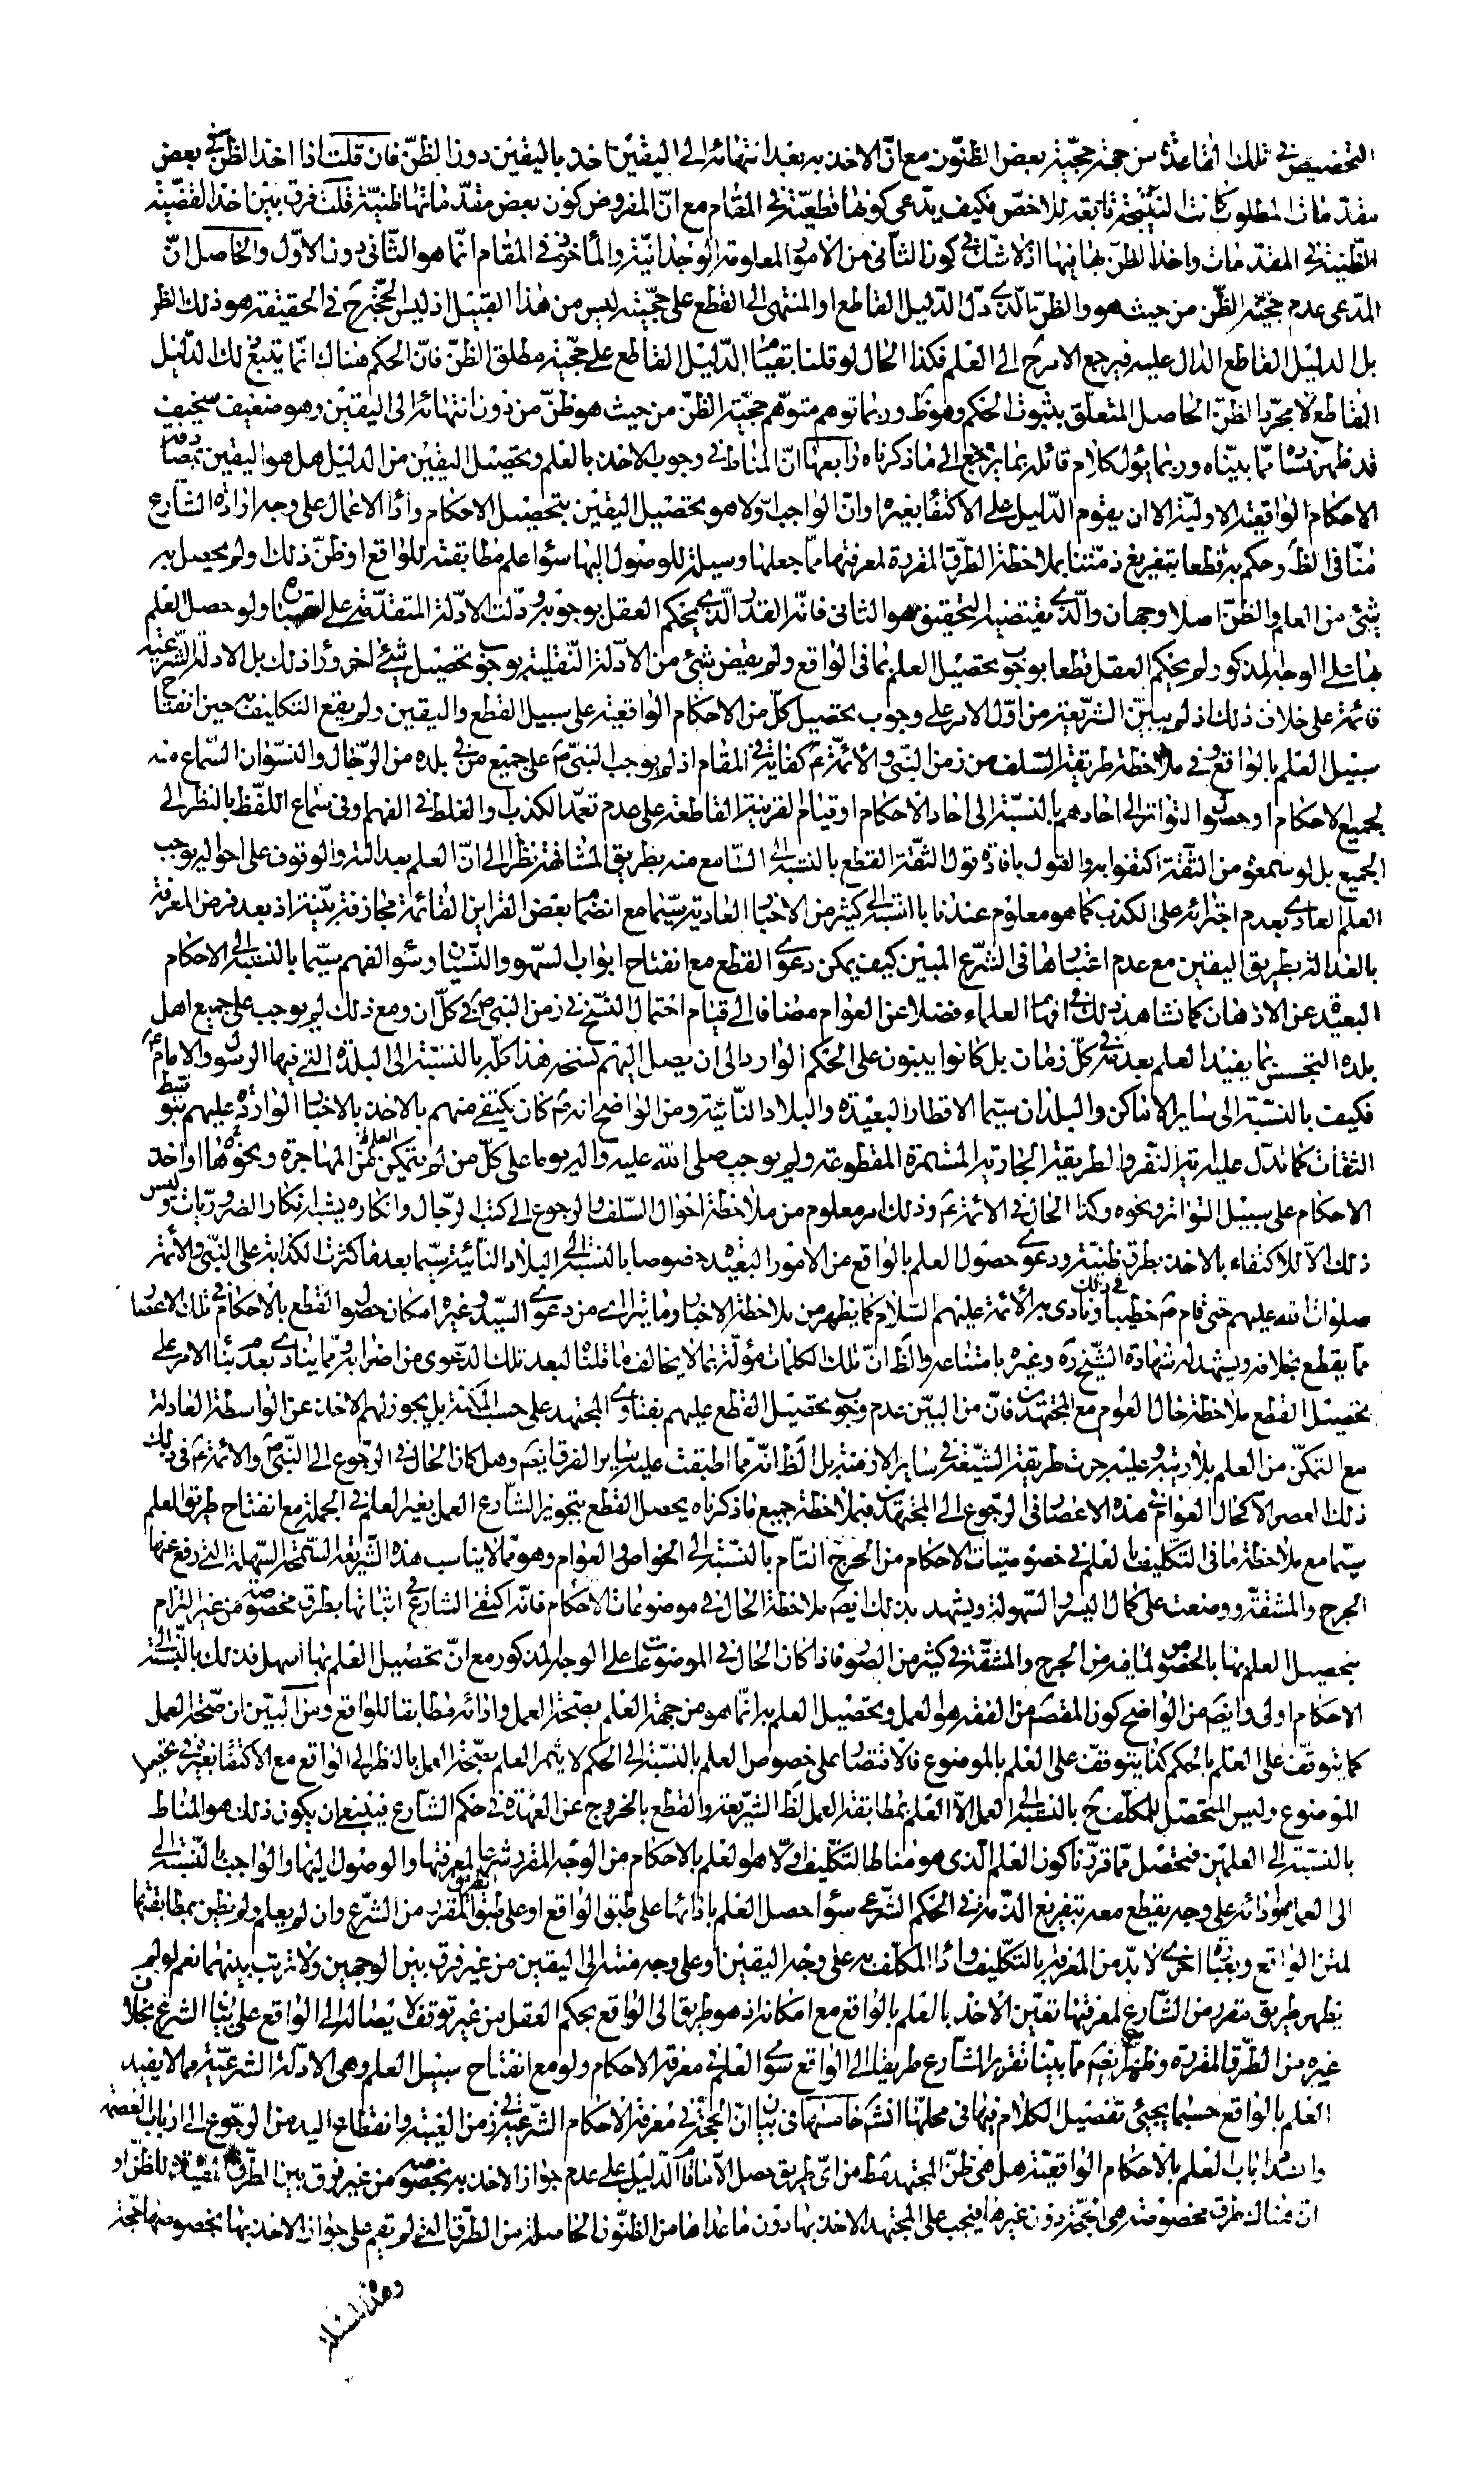 التخصيص في تلك القاعدة من جهة حجية بعض الظنون مع ان الاخذ به بعد انتهائه الى اليقين اخذ باليقين دون الظن فان قلت اذا اخذ الظن في بعض
مقدمات المطلوب كانت النتيجة تابعة للاخص فكيف يدعى كونها قطعية في المقام مع ان المفروض كون بعض مقدماتها ظنية قلت فرق بين اخذ القضية
الظنية في المقدمات واخذ الظن بها فيها اذ لا شك في كون الثاني من الامور المعلومة الوجدانية والماخوذ في المقام انما هو الثاني دون الاول والحاصل ان
المدعى عدم حجية الظن من حيث هو والظن الذي دل الدليل القاطع او المنتهى الى القطع على حجيته ليس من هذا القبيل اذ ليس الحجة ح في الحقيقة هو ذلك الظن
بل الدليل القاطع الدال عليه فيرجع الامر ح الى العلم فكذا الحال لو قلنا بقيام الدليل القاطع على حجية مطلق الظن فان الحكم هناك انما يتبع لك الدليل
القاطع لا مجرد الظن الحاصل المتعلق بثبوت الحكم وهو ظ وربما توهم متوهم حجية الظن من حيث هو ظن من دون انتهائه الى اليقين وهو ضعيف سخيف
قد ظهر فساده مما بيناه وربما يؤل كلام قائله بما يرجع الى ما ذكرناه رابعها ان المناط في وجوب الاخذ بالعلم وتحصيل اليقين من الدليل هل هو اليقين بمصادفة
الاحكام الواقعية الاولية الا ان يقوم الدليل على الاكتفاء بغيره او ان الواجب اولا هو تحصيل اليقين بتحصيل الاحكام واداء الاعمال على وجه اراده الشارع
منا في الظ وحكم به قطعا بتفريغ ذمتنا بملاحظة الطرق المقررة لمعرفتها مما جعلها وسيلة للوصول اليها سواء علم مطابقته للواقع او ظن ذلك او لم يحصل به
شيء من العلم والظن اصلا وجهان والذي يقتضيه التحقيق هو الثاني فانه القدر الذي يحكم العقل بوجوبه ودلت الادلة المتقدمة على اعتباره ولو حصل العلم
بها على الوجه المذكور لم يحكم العقل قطعا بوجوب تحصيل العلم بما في الواقع ولم يقض شيء من الادلة النقلية بوجوب تحصيل شيء اخر وراء ذلك بل الادلة الشرعية
قائمة على خلاف ذلك اذ لم يبين الشريعة من اول الامر على وجوب تحصيل كل من الاحكام الواقعية على سبيل القطع واليقين ولم يقع التكليف به حين انفتاح
سبيل العلم بالواقع وفي ملاحظة طريقة السلف من زمن النبي ص والائمة ع كفاية في المقام اذ لم يوجب النبي ص على جميع من في بلده من الرجال والنسوان السماع منه
لجميع الاحكام او حصول التواتر الى احادهم بالنسبة الى احاد الاحكام او قيام القرينة القاطعة على عدم تعمد الكذب والغلط في الفهم وفي سماع اللفظ بالنظر الى
الجميع بل لو سمعوه من الثقة اكتفوا به والقول بافادة قول الثقة القطع بالنسبة الى السامع منه بطريق المشافهة نظرا الى ان العلم بعدالته والوقوف على احواله يوجب
العلم العادي بعدم اجترائه على الكذب كما هو معلوم عندنا بالنسبة الى كثير من الاخبار العادية سيما مع انضمام بعض القراين القائمة مجازفة بينة اذ بعد فرض المعرفة
بالعدالة بطريق اليقين مع عدم اعتبارها في الشرع المبين كيف يمكن دعوى القطع مع انفتاح ابواب السهو والنسيان وسوء الفهم سيما بالنسبة الى الاحكام
البعيدة عن الاذهان كما نشاهد ذلك في افهام العلماء فضلا عن العوام مضافا الى قيام احتمال النسخ في زمن النبي ص في كل ان ومع ذلك لم يوجب على جميع اهل
بلده التجسس بما يفيد العلم بعدمه في كل زمان بل كانوا يبنون على الحكم الوارد الى ان يصل اليهم نسخه هذا كله بالنسبة الى البلدة التي فيها الرسول والامام ع
فكيف بالنسبة الى ساير الاماكن والبلدان سيما الاقطار البعيدة والبلاد النائية ومن الواضح انه ص كان يكتفي منهم بالاخذ بالاخبار الواردة عليهم بتوسط
الثقات كما تدل عليه اية النفر والطريقة الجارية المستمرة المقطوعة ولم يوجب صلى الله عليه واله يوما على كل من لم يتمكن من العلم المهاجرة ونحوها او اخذ
الاحكام على سبيل التواتر ونحوه وكذا الحال في الائمة ع وذلك امر معلوم من ملاحظة احوال السلف والرجوع الى كتب الرجال وانكاره يشبه انكار الضروريات وليس
ذلك الا للاكتفاء بالاخذ بطرق ظنية ودعوى حصول العلم بالواقع من الامور البعيدة خصوصا بالنسبة الى البلاد النائية سيما بعد ما كثرت الكذابة على النبي والائمة
صلوات الله عليهم حتى قام ص خطيبا في ذلك ونادى به الائمة عليهم السلام كما يظهر من ملاحظة الاخبار وما يترائى من دعوى السيد وغيره امكان حصول القطع بالاحكام في تلك الاعصار
مما يقطع بخلافه ويشهد له شهادة الشيخ ره وغيره بامتناعه والظ ان تلك الكلمات مؤلة بما لا يخالف ما قلنا لبعد تلك الدعوى من اضرابه ومما ينادي بعدم بناء الامر على
تحصيل القطع ملاحظة حال العوام مع المجتهدين فان من البين عدم وجوب تحصيل القطع عليهم بفتاوى المجتهد على حسب المكنة بل يجوز لهم الاخذ عن الواسطة العادلة
مع التمكن من العلم بلا ريبة وعليه جرت طريقة الشيعة في ساير الازمنة بل الظ انه مما اطبقت عليه ساير الفرق ايضم وهل كان الحال في الرجوع الى النبي ص والائمة ع في ذلك
ذلك العصر الا كحال العوام في هذه الاعصار في الرجوع الى المجتهدين فبملاحظة جميع ما ذكرناه يحصل القطع بتجويز الشارع العمل بغير العلم في الجملة مع انفتاح طريق العلم
سيما مع ملاحظة ما في التكليف بالعلم في خصوصيات الاحكام من الحرج التام بالنسبة الى الخواص والعوام وهو مما لا يناسب هذه الشريعة السمحة السهلة التي رفع عنها
الحرج والمشقة ووضعت على كمال اليسر والسهولة ويشهد بذلك ايضم ملاحظة الحال في موضوعات الاحكام فانه اكتفى الشارع في اثباتها بطرق مخصوصة من غير الزام
بتحصيل العلم بها بالخصوص لما فيه من الحرج والمشقة في كثير من الصور فاذا كان الحال في الموضوعات على الوجه المذكور مع ان تحصيل العلم بها اسهل فذلك بالنسبة الى
الاحكام اولى وايضم من الواضح كون المقصم من الفقه هو العمل وتحصيل العلم به انما هو من جهة العلم بصحة العمل وادائه مطابقا للواقع ومن البين ان صحة العمل
كما يتوقف على العلم بالحكم كذا يتوقف على العلم بالموضوع فالاقتصار على خصوص العلم بالنسبة الى الحكم لا يثمر العلم بصحة العمل بالنظر الى الواقع مع الاكتفاء بغيره في تحصيل
الموضوع وليس المتحصل للمكلف ح بالنسبة الى العمل الا العلم بمطابقة العمل لظ الشريعة والقطع بالخروج عن العهدة في حكم الشارع فينبغي ان يكون ذلك هو المناط
بالنسبة الى العلمين فتحصل مما قررنا كون العلم الذي هو مناط التكليف اولا هو العلم بالاحكام من الوجه المقرر شرعا لمعرفتها والوصول اليها والواجب بالنسبة الى
الى العمل هو ادائه على وجه يقطع معه بتفريغ الذمة في الحكم الشرعي سواء حصل العلم بادائها على طبق الواقع او على طبق الطريق المقرر من الشرع وان لم يعلم ولم يظن بمطابقتها
لمتن الواقع وبعبارة اخرى لا بد من المعرفة بالتكليف واداء المكلف به على وجه اليقين او على وجه منته الى اليقين من غير فرق بين الوجهين ولا ترتب بينهما نعم لو لم
يظهر طريق مقرر من الشارع لمعرفتها تعين الاخذ بالعلم بالواقع مع امكانه اذ هو طريق الى الواقع بحكم العقل من غير توقف لايصاله الى الواقع على بيان الشرع بخلاف
غيره من الطرق المقررة وظهر ايضم مما بينا تقرير الشارع طريقا الى الواقع سوى العلم في معرفة الاحكام ولو مع انفتاح سبيل العلم وهي الادلة الشرعية مما لا يفيد
العلم بالواقع حسبما يجيئ تفصيل الكلام فيها في محلها انش خامسها في بيان ان الحجة في معرفة الاحكام الشرعية في زمن الغيبة وانقطاع اليد من الرجوع الى ارباب العصمة
وانسداد باب العلم بالاحكام الواقعية هل هي ظن المجتهد مط من اي طريق حصل الا ما قام الدليل على عدم جواز الاخذ به بخصوصه من غير فرق بين الطرق المفيدة للظن او
ان هناك طرق مخصوصة هي الحجة دون غيرها فيجب على المجتهد الاخذ بها دون ما عداها من الظنون الحاصلة من الطرق التي لم يقم على جواز الاخذ بها بخصوصها حجة
وهذه المسئلة